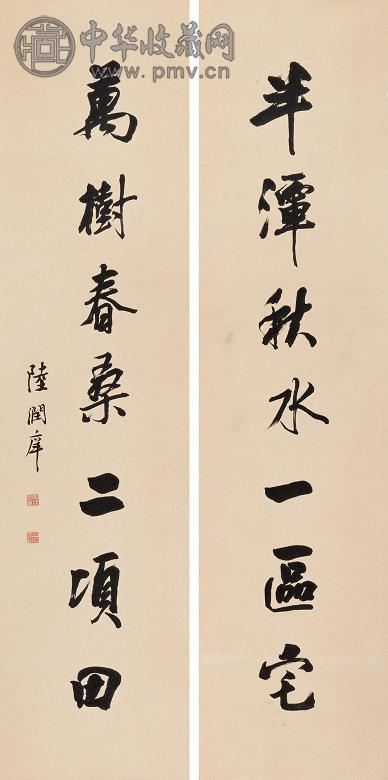 中华收藏网
www.pmv.cn
半潭秋水一區宅
萬樹春桑二頃田
陸潤庠